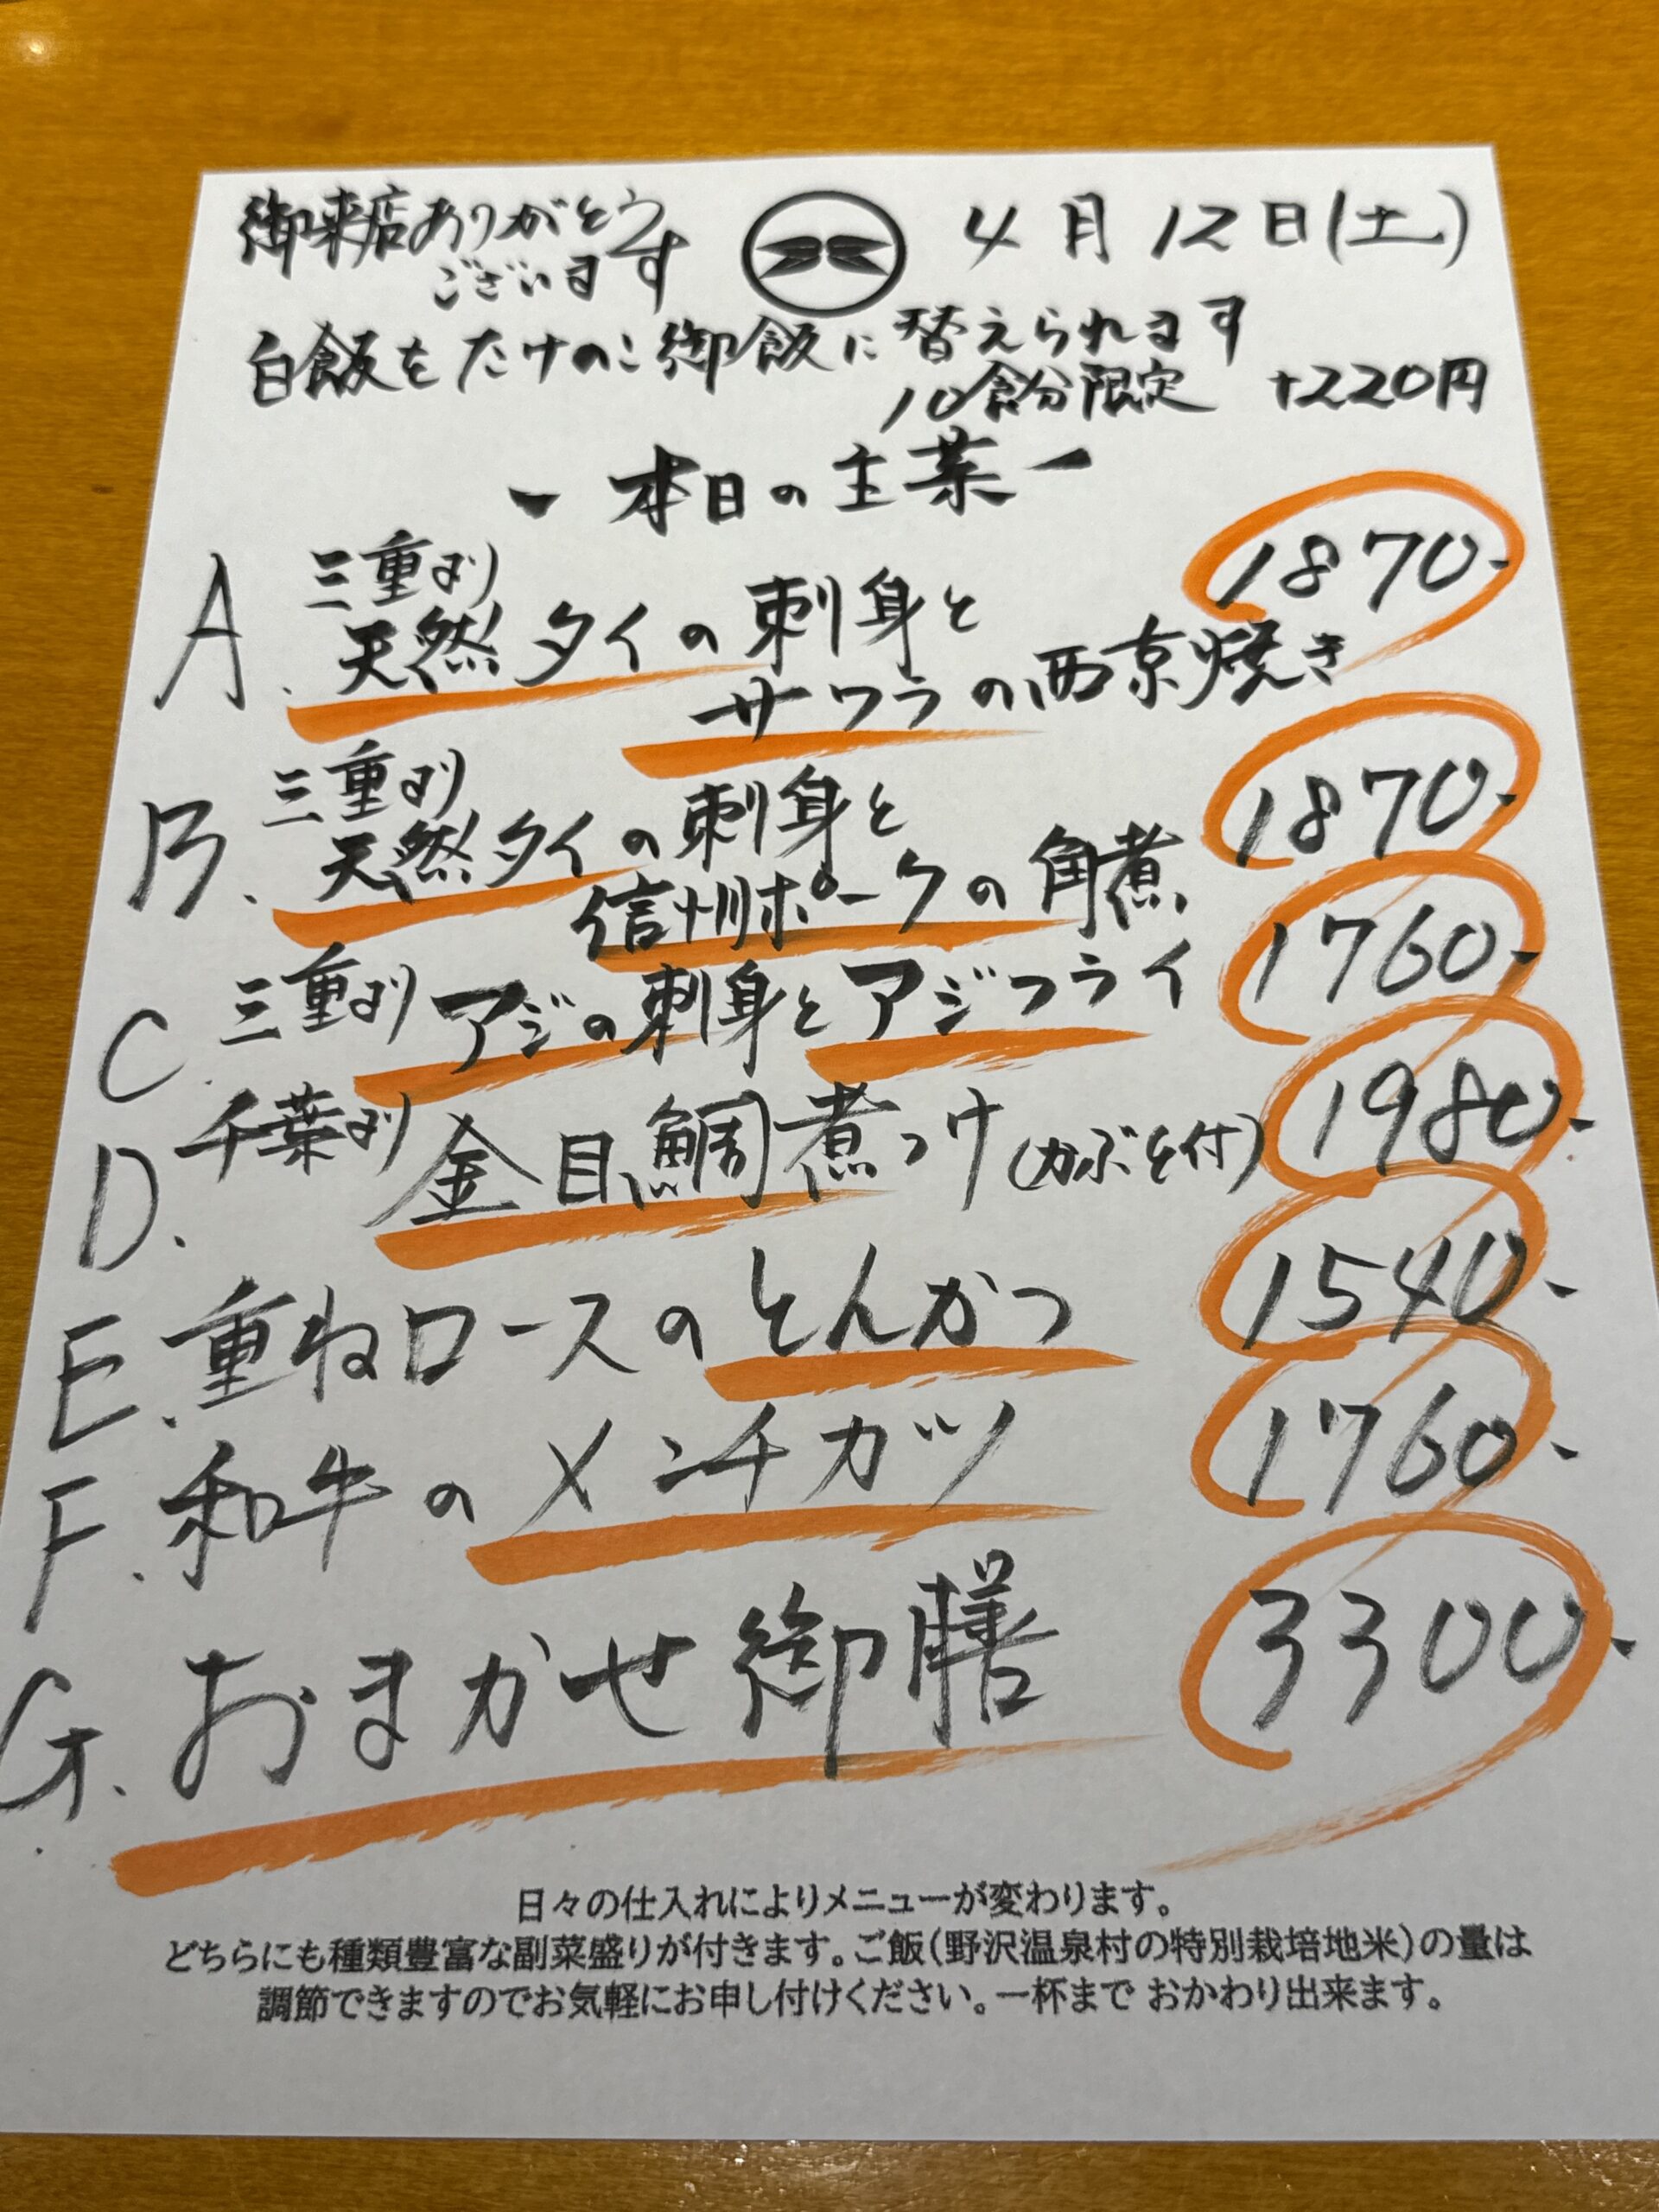 御来店ありがとう
ございます
4月12日(土)
白飯をたけのこ御飯に替えられます
10食分限定 +220円
ー本日の主菜ー
A. 三重より
天然タイの刺身と
サワラの西京焼き
1870-
B. 三重より
天然タイの刺身と
信州ポークの角煮
1870-
C. 三重より アジの刺身とアジフライ 1760-
D. 千葉より 金目鯛煮つけ(かぶと付) 1980-
E. 重ねロースのとんかつ 1540-
F. 和牛のメンチカツ 1760-
G. おまかせ御膳 3300-
日々の仕入れによりメニューが変わります。
どちらにも種類豊富な副菜盛りが付きます。ご飯(野沢温泉村の特別栽培地米)の量は
調節できますのでお気軽にお申し付けください。一杯まで おかわり出来ます。